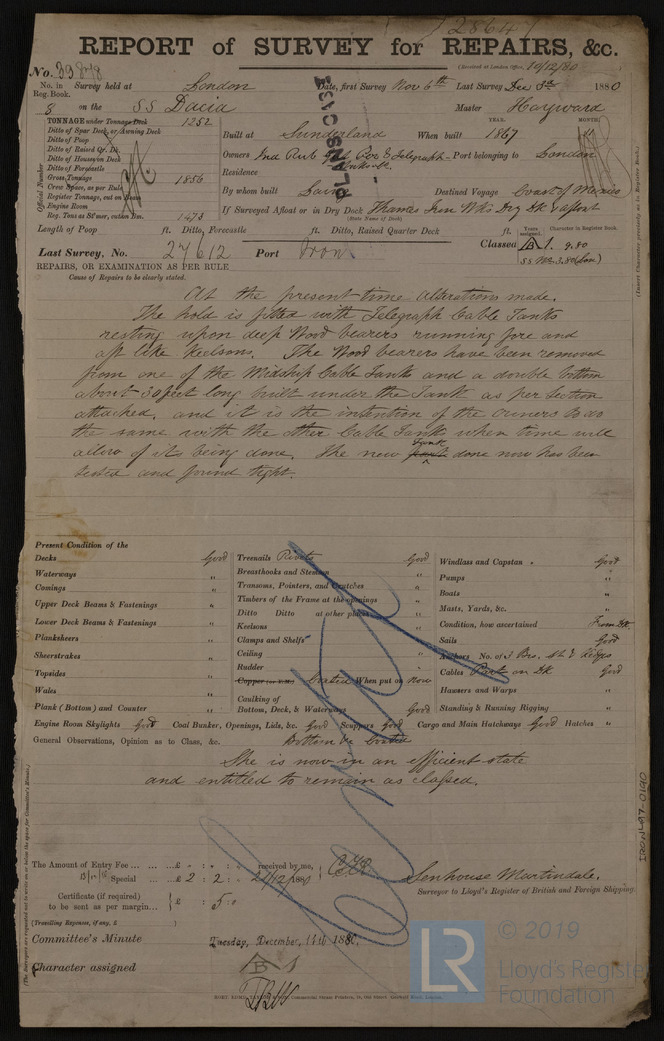 28647
REPORT of SURVEY for REPAIRS, &c.
(Received at London Office, 10/12/80
No. 39878
No. in Reg. Book. Survey held at London Date, first Survey Nov 6th Last Survey Dec 3rd 1880
8 on the SS Dacia Master Hayward
TONNAGE under Tonnage Deck 1252
Ditto of Spar Deck, or Awning Deck
Ditto of Poop
Ditto of Raised Qr. Dk.
Ditto of Houses on Deck
Ditto of Forecastle
Gross Tonnage 1856
Crew Space, as per Rule
Register Tonnage, cut on Beam
Engine Room
Reg. Tons as Stmer, cut on Bm. 1473
Official Number
YEAR. MONTH.
Built at Sunderland When built 1867 11
Owners Ind Rub Gut Per & Telegraph Works Co. Port belonging to London
Residence
By whom built Laing Destined Voyage Coast of Mexico
If Surveyed Afloat or in Dry Dock Thames Iron Wks Dry Dk & afloat
(State Name of Dock)
PLANS OC 132
Length of Poop ft. Ditto, Forecastle ft. Ditto, Raised Quarter Deck ft.
Years assigned. Character in Register Book.
Last Survey, No. 27612 Port Iron Classed B 1. 9.80
SS No. 3.80 (Lon)
REPAIRS, OR EXAMINATION AS PER RULE
Cause of Repairs to be clearly stated.
(Insert Character precisely as in Register Book.)
At the present time alterations made.
The hold is fitted with Telegraph Cable Tanks
resting upon deep Wood bearers running fore and
aft like Keelsons. The Wood bearers have been removed
from one of the Midship Cable Tanks and a double bottom
about 30 feet long built under the Tank as per section
attached, and it is the intention of the owners to do
the same with the other Cable Tank when time will
allow of it being done. The new tank done now has been
tested and found tight.
Present Condition of the
Decks Good
Waterways "
Comings "
Upper Deck Beams & Fastenings "
Lower Deck Beams & Fastenings "
Planksheers "
Sheerstrakes "
Topsides "
Wales "
Plank (Bottom) and Counter "
Treenails Rivets Good
Breasthooks and Stemson "
Transoms, Pointers, and Crutches "
Timbers of the Frame at the openings "
Ditto Ditto at other places "
Keelsons "
Clamps and Shelfs "
Ceiling "
Rudder "
Copper (or Y.M.) Coated When put on Now
Caulking of
Bottom, Deck, & Waterways Good
Windlass and Capstan Good
Pumps "
Boats "
Masts, Yards, &c. "
Condition, how ascertained From Dk
Sails Good
Anchors No. of 3 Bro, St & Kedges
Cables Part on DK Good
Hawsers and Warps "
Standing & Running Rigging "
Engine Room Skylights Good Coal Bunker, Openings, Lids, &c. Good Scuppers Good Cargo and Main Hatchways Good Hatches "
General Observations, Opinion as to Class, &c. Bottom Coated
She is now in an efficient state
and entitled to remain as classed.
The Amount of Entry Fee ... £ : : received by me,
Special ... £ 2 : 2 : 21/12/1880
Certificate (if required) to be sent as per margin... £ : 5 :
(Travelling Expenses, if any, £ )
Senhouse Martindale.
Surveyor to Lloyd's Register of British and Foreign Shipping.
Committee's Minute Tuesday, December 14th 1880.
Character assigned B 1
IRON497-0190
© 2019
LR
Lloyd's Register
Foundation